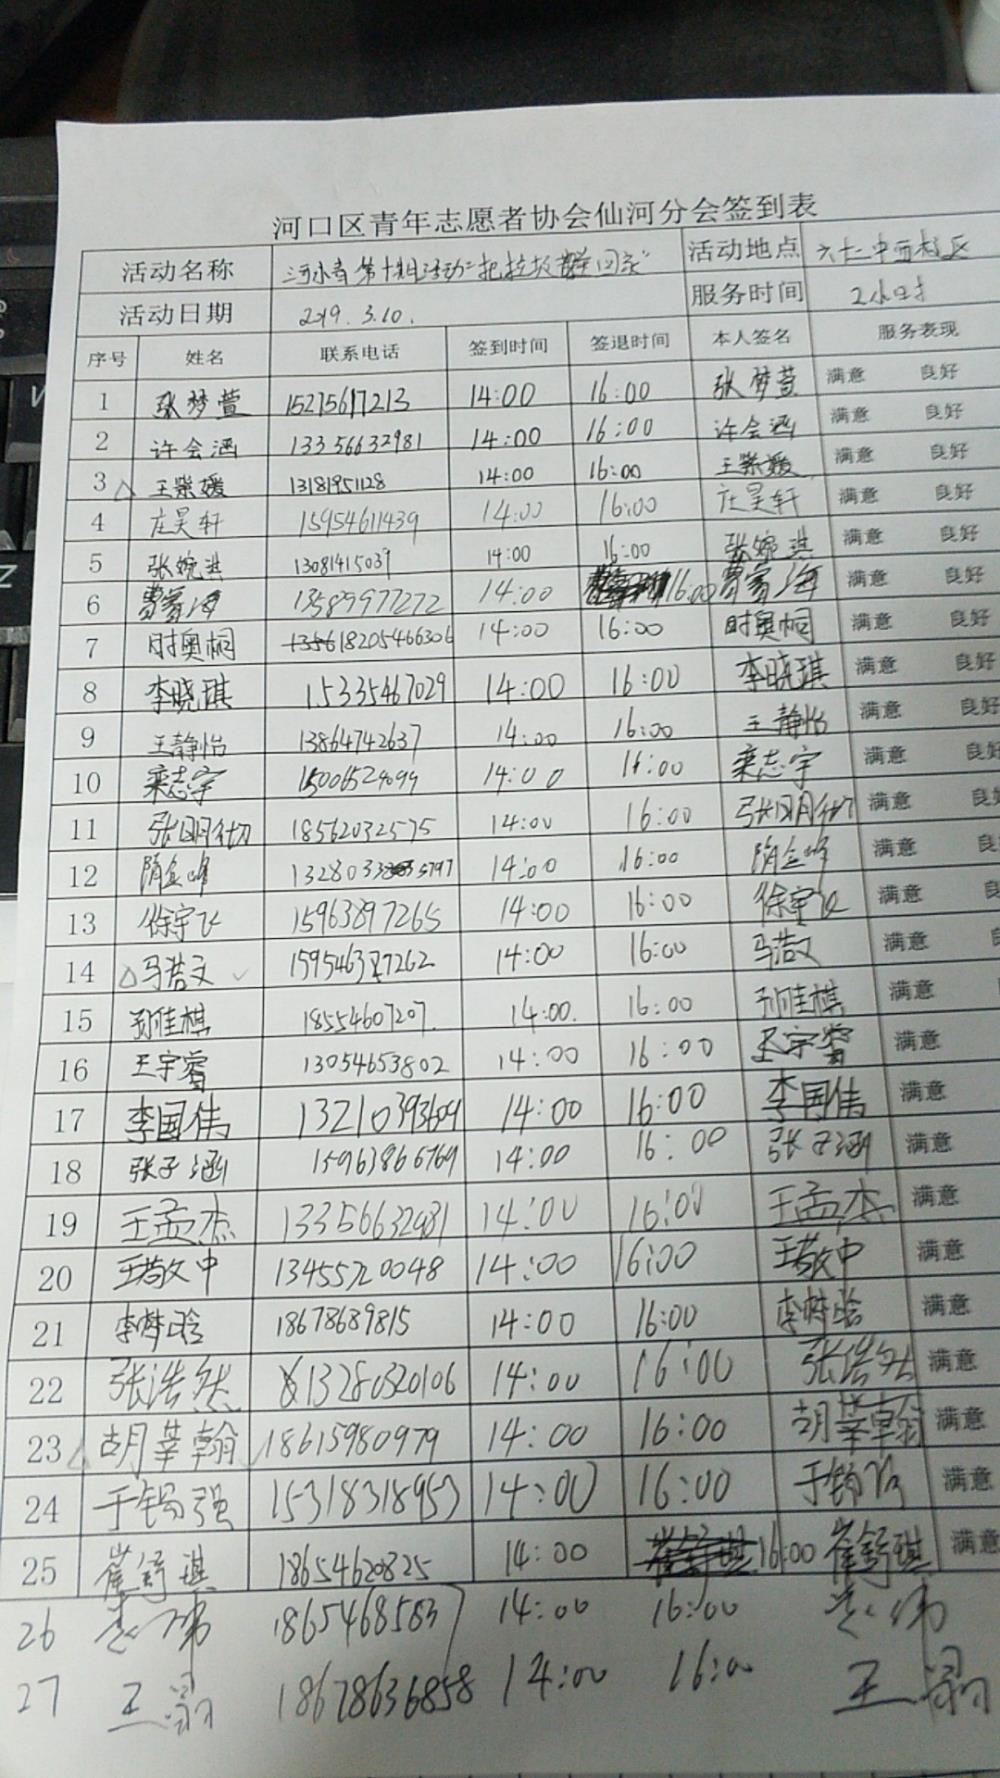 河口区青年志愿者协会仙河分会签到表
活动名称 河小青第十期活动"把垃圾带回家" 活动地点
活动日期 2019.3.10. 服务时间 2小时
序号 姓名 联系电话 签到时间 签退时间 本人签名 服务表现
1 张梦萱 15275617213 14:00 16:00 张梦萱 满意 良好
2 许会涵 13356632981 14:00 16:00 许会涵 满意 良好
3 王紫媛 13181951128 14:00 16:00 王紫媛 满意 良好
4 庄昊轩 15954611439 14:00 16:00 庄昊轩 满意 良好
5 张婉淇 13081415039 14:00 16:00 张婉淇 满意 良好
6 14:00 16:00 满意 良好
7 时奥桐 18205466306 14:00 16:00 时奥桐 满意 良好
8 李晓琪 15335467029 14:00 16:00 李晓琪 满意 良好
9 王静怡 13864742637 14:00 16:00 王静怡 满意 良好
10 栾志宇 14:00 16:00 栾志宇 满意 良好
11 18562032575 14:00 16:00 满意 良好
12 隋金峰 14:00 16:00 隋金峰 满意 良
13 徐宇飞 15963897265 14:00 16:00 徐宇飞 满意 良
14 马浩文 14:00 16:00 马浩文 满意 良
15 孙佳棋 18554607207 14:00 16:00 孙佳棋 满意
16 王宇睿 13054653802 14:00 16:00 王宇睿 满意
17 李国伟 14:00 16:00 李国伟 满意
18 张子涵 14:00 16:00 张子涵 满意
19 王孟杰 13356632981 14:00 16:00 王孟杰 满意
20 王敬中 13455720048 14:00 16:00 王敬中 满意
21 李梦晗 18678639815 14:00 16:00 李梦晗 满意
22 张浩然 13280320106 14:00 16:00 张浩然 满意
23 胡莘翰 18615980979 14:00 16:00 胡莘翰 满意
24 于锡强 15318318953 14:00 16:00 于锡强 满意
25 崔舒琪 18654620825 14:00 16:00 崔舒琪 满意
26 袁伟 18654685837 14:00 16:00 袁伟
27 王 18678636858 14:00 16:00 王